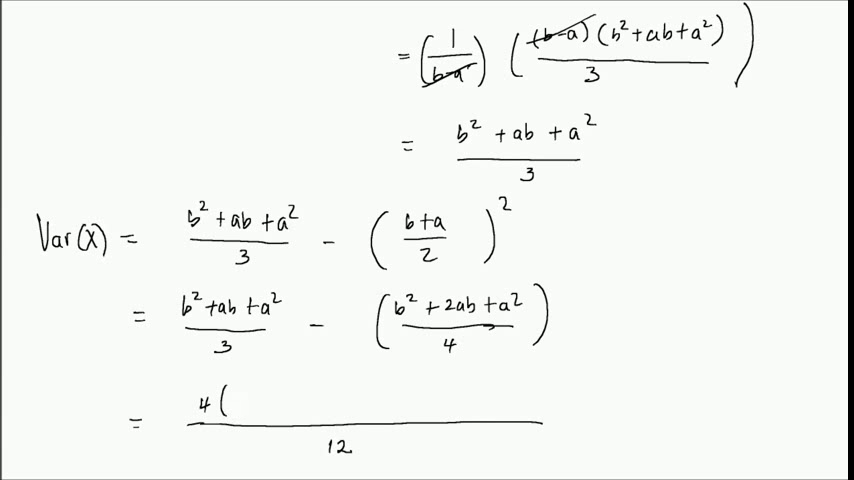 = (1/(b-a)) ((b-a)(b²+ab+a²)/3)
= (b² + ab + a²)/3
Var(X) = (b²+ab+a²)/3 - ((b+a)/2)²
= (b²+ab+a²)/3 - ((b²+2ab+a²)/4)
= 4(/12